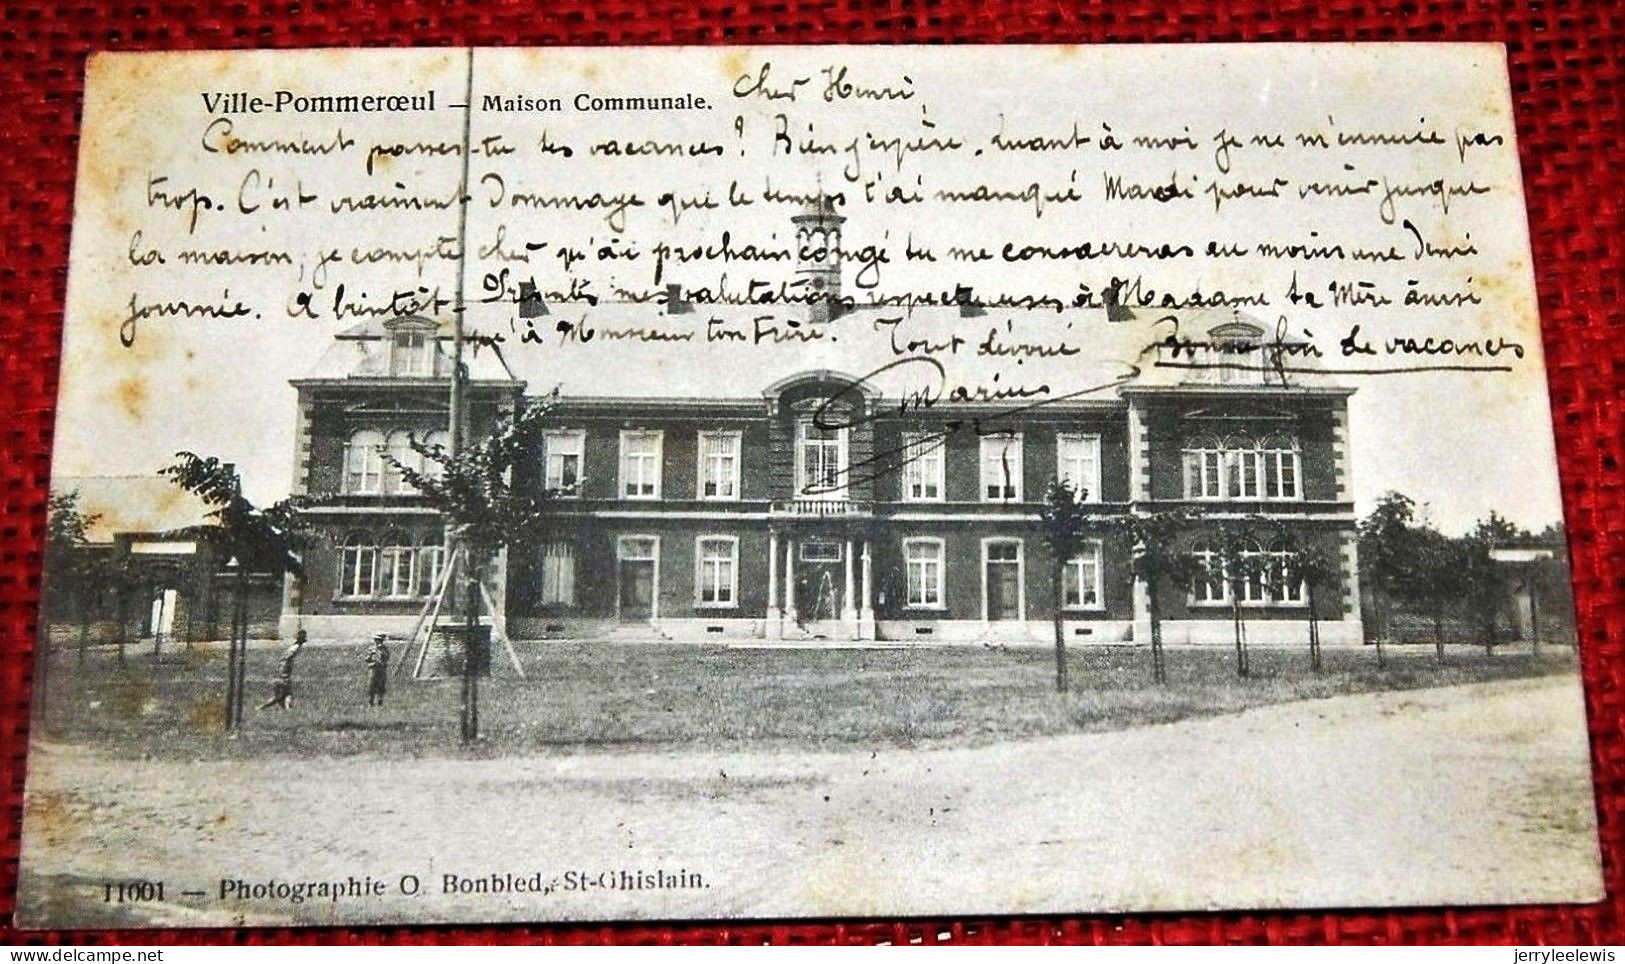 Ville-Pommerœul — Maison Communale.
Cher Henri,
Comment passes-tu tes vacances ? Bien j'espère. Quant à moi je ne m'ennuie pas
trop. C'est vraiment dommage que le temps t'ai manqué Mardi pour venir jusque
la maison, je compte cher qu'ai prochain congé tu me consacreras au moins une demi
journée. A bientôt - Présentes mes salutations respectueuses à Madame ta Mère ainsi
qu'à Monsieur ton Frère. Tout dévoué Bonne fin de vacances
Marius
11001 — Photographie O. Bonbled, St-Ghislain.
delcampe.net
jerryleelewis